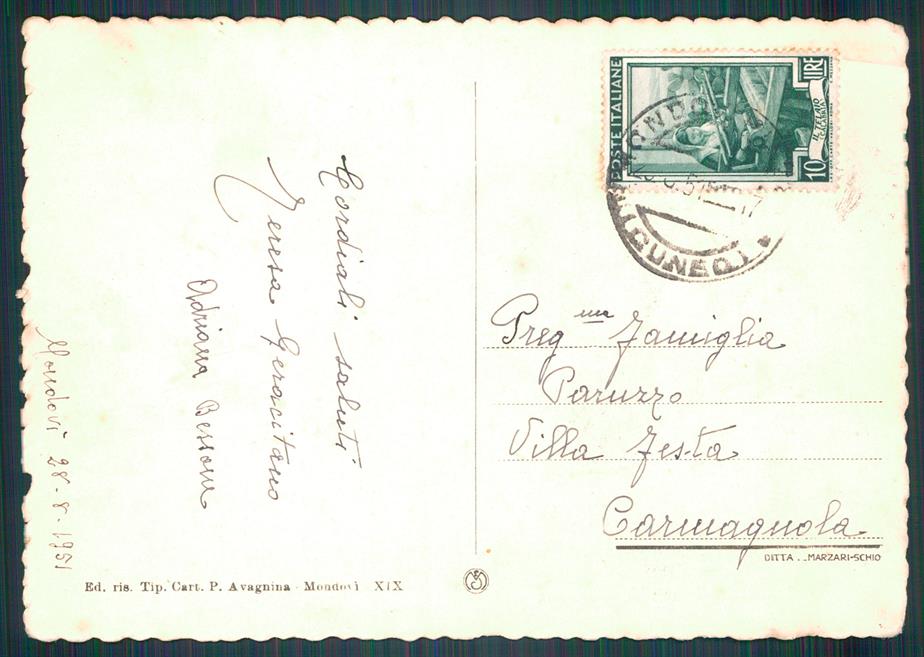 Cordiali saluti
Teresa Geracitano
Adriana Bessone
Mondovì 28-8-1951
Ed. ris. Tip. Cart. P. Avagnina - Mondovì XIX
POSTE ITALIANE
10 LIRE
IL TELAIO
MONDOVÌ
(CUNEO)
Preg ma Famiglia
Paruzzo
Villa Festa
Carmagnola
DITTA . . MARZARI-SCHIO